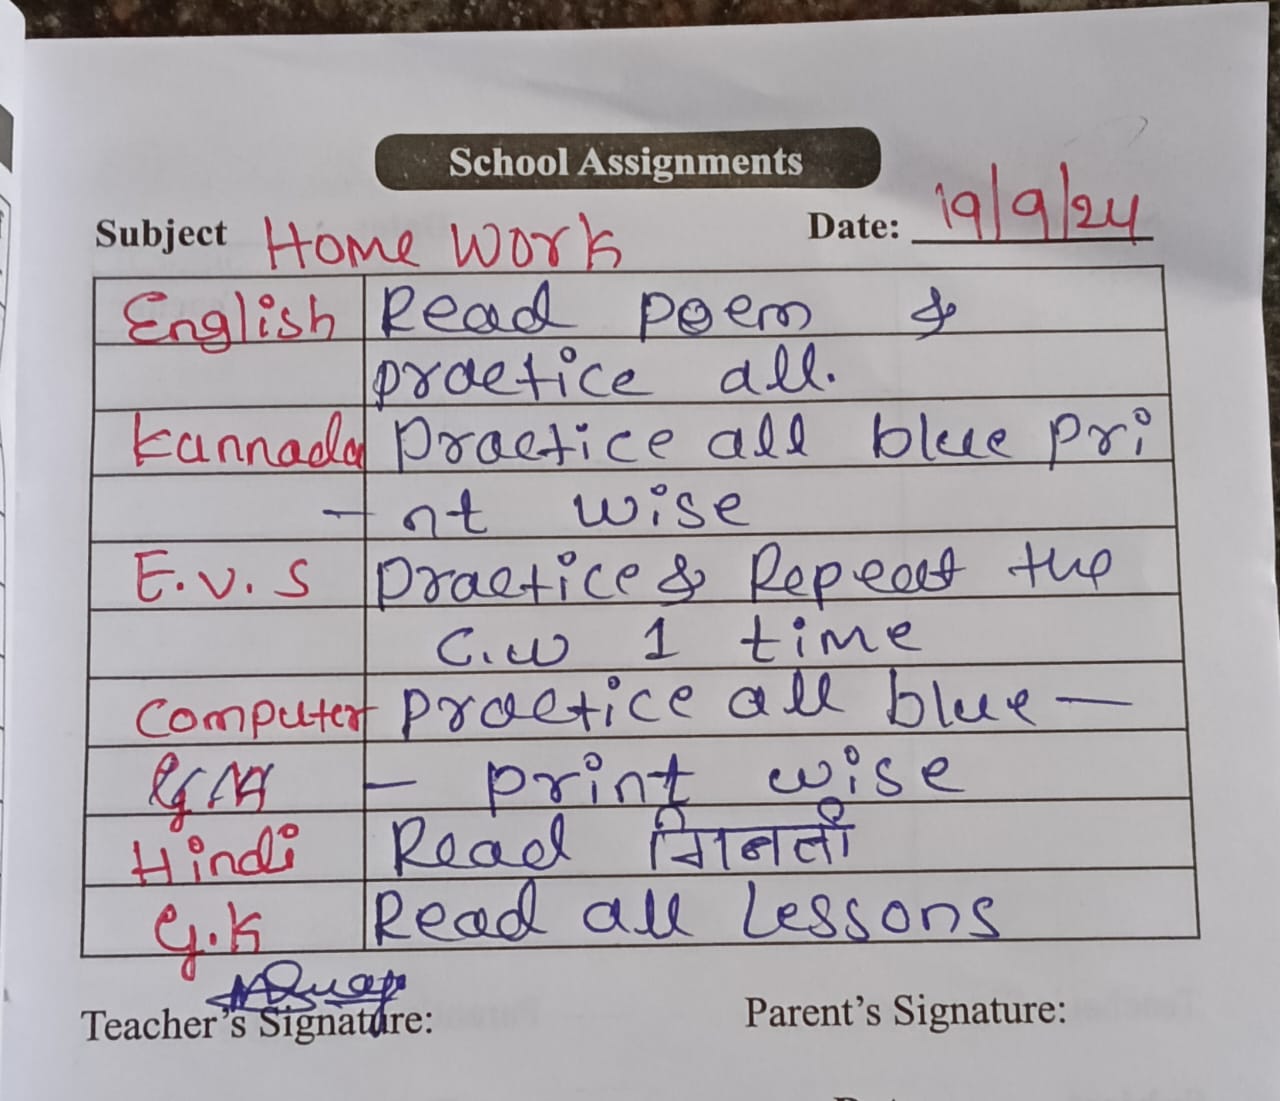 School Assignments
Subject Home Work Date: 19/9/24
English Read poem &
practice all.
Kannada Practice all blue pri
- nt wise
E.V.S Practice & Repeat the
C.W 1 time
Computer practice all blue -
- print wise
Hindi Read गिनती
G.K Read all Lessons
Teacher's Signature: Parent's Signature: